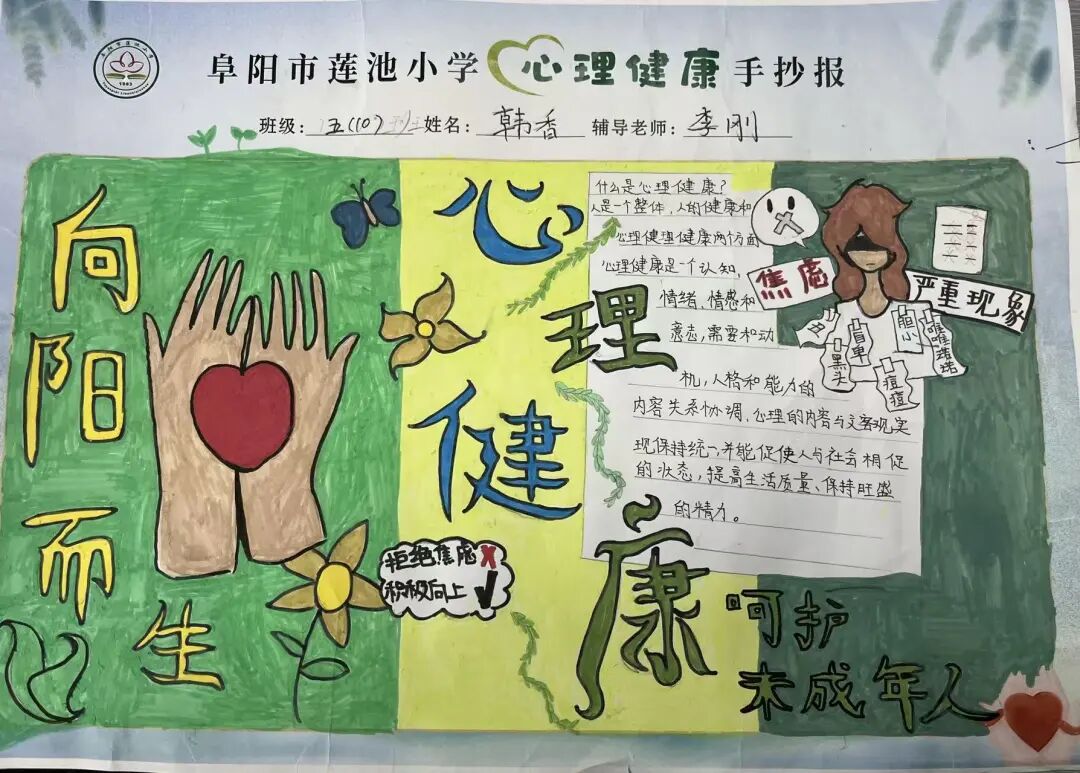 阜阳市莲池小学心理健康手抄报
班级：五(10)班 姓名：韩香 辅导老师：李刚
向阳而生
心理健康
什么是心理健康？
人是一个整体，人的健康和
心理健理健康两个方面
心理健康是一个认知，
情绪、情感和
意志，需要和动
机，人格和能力的
内容关系协调、心理的内容与文客现实
现保持统一，并能促使人与社会相促
的状态，提高生活质量、保持旺盛
的精力。
焦虑
严重现象
丑
黑头
胆小
痘痘
拒绝焦虑✗
积极向上✓
呵护
未成年人
1983